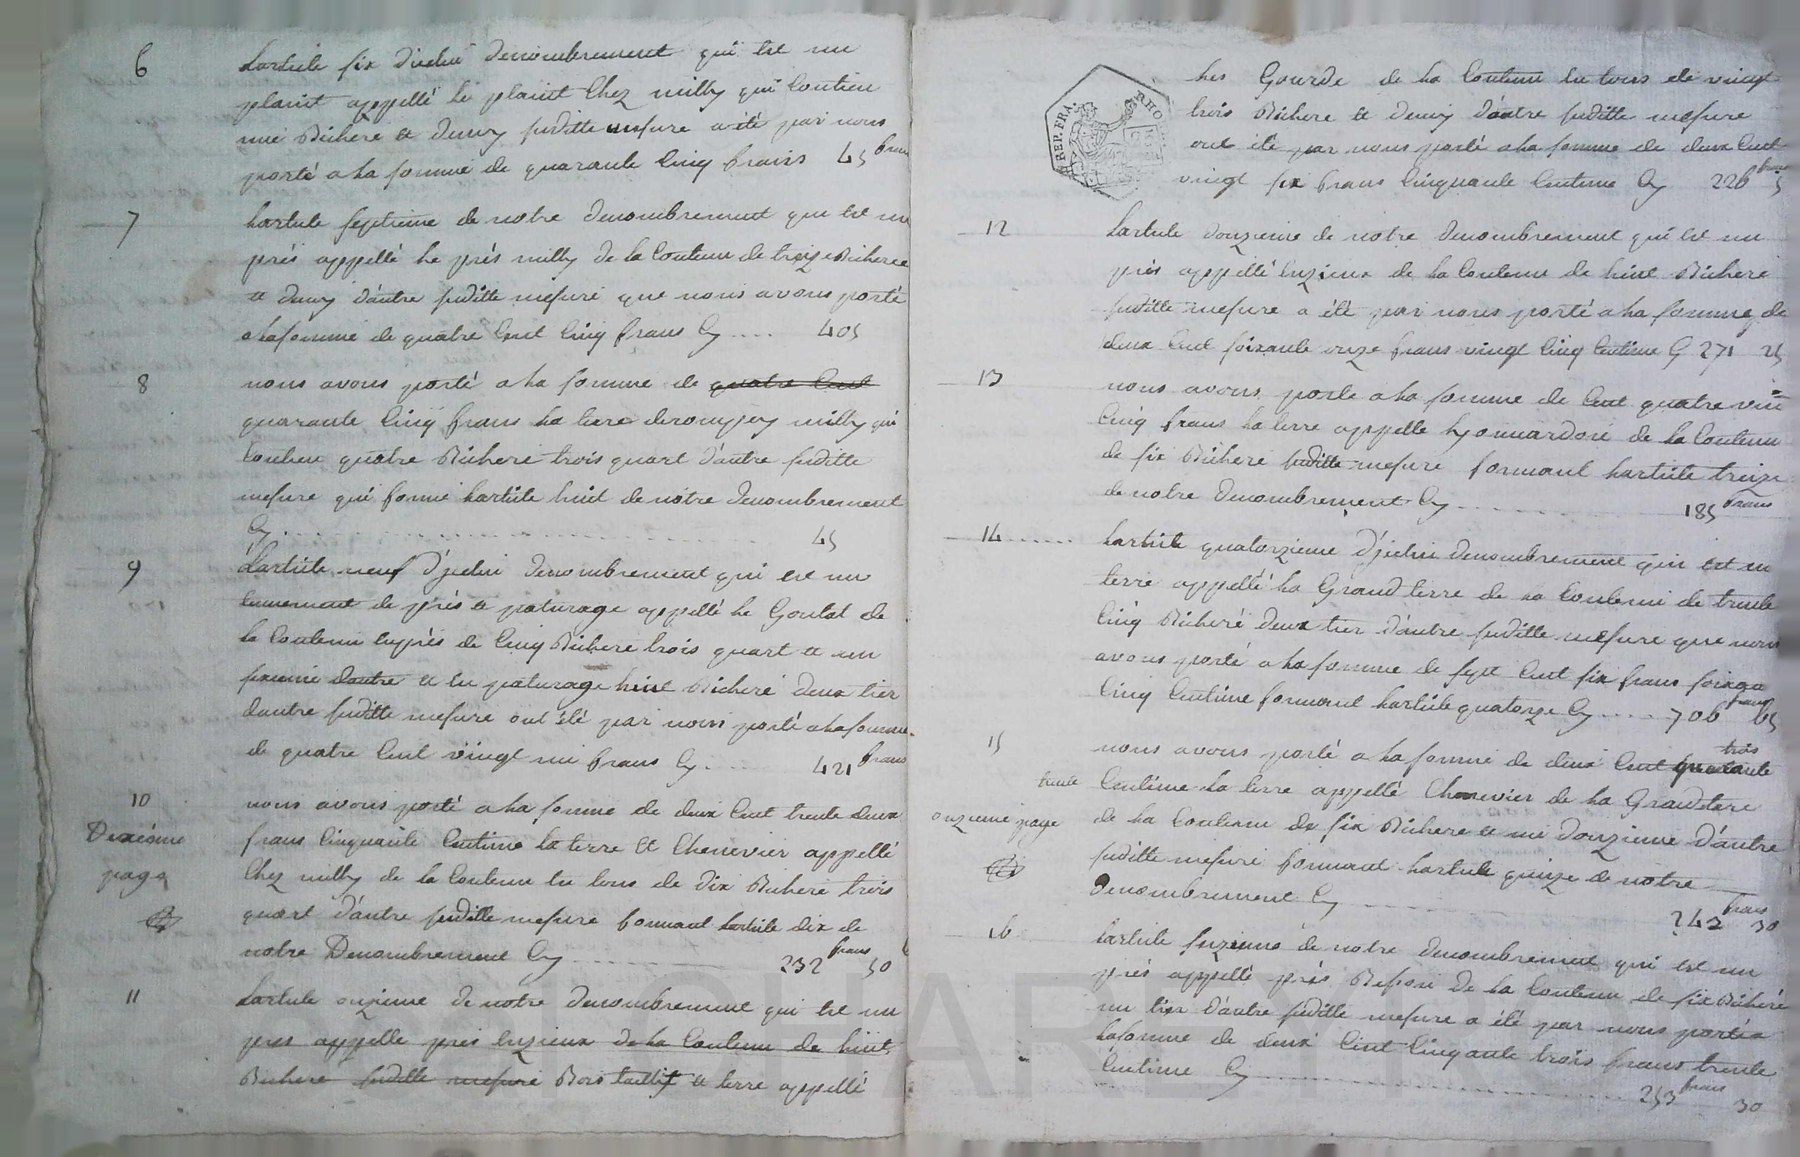 6
Lartiele six dicelui denombrement qui est un
plant appellé le plant Chez milly qui Contien
une Bichere et demy suditte mesure a été par nous
porté a la somme de quarante Cinq frans 45 frans
7
Lartiele septieme de notre denombrement qui est un
près appellé le près milly de la Contenu de treize Bicheree
et demy d'autre suditte mesure que nous avons porté
a la somme de quatre Cent Cinq frans Cy .... 405
8
nous avons porté a la somme de quatre Cent
quarante Cinq frans la terre milly qui
Contien quatre Bicheré trois quart d'autre suditte
mesure qui forme lartiele huit de notre denombrement
Cy .................... 45
9
Lartiele neuf d'jcelui denombrement qui est un
tennement de près et paturage appellé le Goutat de
la Contenu en près de Cinq Bichere trois quart et un
dautre et en paturage huit Bicheré deux tier
dautre suditte mesure ont été par nous porté a la somme
de quatre Cent vingt un frans Cy ..... 421 frans
10
nous avons porté a la somme de deux Cent trente deux
Dixiéme
frans Cinquante Centime la terre et Chenevier appellé
page
Chez milly de la Contenu en tous de dix Bichere trois
quart d'autre suditte mesure formant lartiele dix de
notre Denombrement Cy .......... 232 frans 50
11
Lartiele onzieme de notre denombrement qui est un
pres appelle près luzieux de la Contenu de huit
Bichere suditte mesure Bois taillif et terre appellé
REP. FRA. RHO
les Gourde de la Contenu en tous de vingt
trois Bichere et demy d'autre suditte mesure
ont été par nous porté a la somme de deux Cent
vingt six frans Cinquante Centime Cy 226 frans 5
12
Lartiele douzieme de notre denombrement qui est un
près appellé luzieux de la Contenu de huit Bicheré
suditte mesure a été par nous porté a la somme de
deux Cent soixante onze frans vingt Cinq Centime Cy 271 25
13
nous avons porté a la somme de Cent quatre vin
Cinq frans la terre appelle de la Contenu
de six Bichere suditte mesure formant lartiele treize
de notre denombrement Cy .......... 185 frans
14 ......
Lartiele quatorzieme d'jcelui denombrement qui est un
terre appellé la Grand terre de la Contenu de trente
Cinq Bicheré deux tier d'autre suditte mesure que nous
avons porté a la somme de sept Cent six frans soixan
Cinq Centime formant lartiele quatorze Cy .... 706 frans 65
15
nous avons porté a la somme de deux Cent quarante trois
trente
Centime la terre appellé Chenevier de la Grand terre
onzieme page
de la Contenu de six Bichere et un douzieme d'autre
suditte mesure formant lartiele quinze de notre
denombrement Cy .......... 243 frans 30
16
Lartiele sezieme de notre denombrement qui est un
près appellé près de la Contenu de six Bicheré
un tier d'autre suditte mesure a été par nous porté a
la somme de deux Cent Cinqante trois frans trente
Centime Cy .......... 253 frans 30